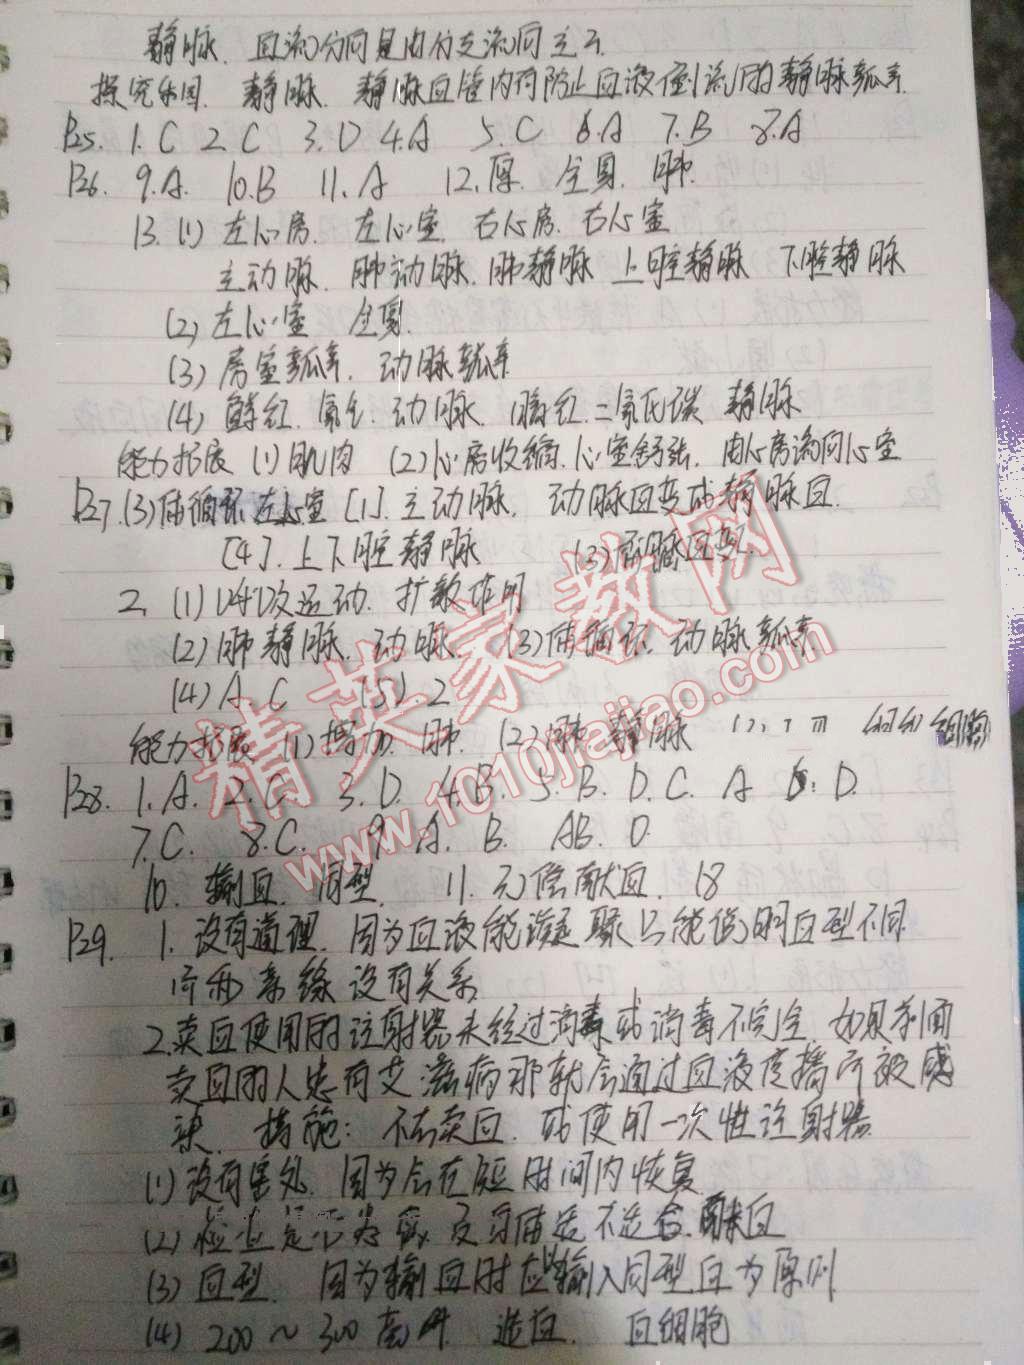 静脉. 血流方向是由分支流向主干.
探究乐园. 静脉. 静脉血管内有防止血液倒流的静脉瓣.
P25. 1.C 2.C 3.D 4.A 5.C 6.A 7.B 8.A
P26. 9.A. 10.B 11.A 12.厚. 全身. 肺.
13.(1) 左心房. 左心室. 右心房. 右心室
主动脉. 肺动脉. 肺静脉 上腔静脉 下腔静脉
(2) 左心室 全身.
(3) 房室瓣. 动脉瓣
(4) 鲜红. 氧气. 动脉. 暗红. 二氧化碳 静脉
能力拓展 (1) 肌肉 (2) 心房收缩. 心室舒张. 由心房流向心室
P27.(3)体循环 左心室 [1]. 主动脉. 动脉血变成静脉血.
[4]. 上下腔静脉
2. (1) 呼吸运动. 扩散作用
(2) 肺静脉. 动脉. (3) 体循环. 动脉瓣.
(4) A. C (5). 2
能力拓展 (1) 增加. 肺. (2) 肺静脉 红细胞
P28. 1.A. 2.C. 3.D. 4.B. 5.B.D.C.A 6.D.
7.C. 8.C. 9.A. B. AB. O.
10. 输血. 同型. 11. 无偿献血. 18
P29. 1. 没有道理. 因为血液能凝聚只能说明血型不同.
而和亲缘没有关系
2.卖血使用的注射器未经过消毒或消毒不完全. 如果前面
卖血的人患有艾滋病那就会通过血液传播而被感
染. 措施: 不去卖血. 或使用一次性注射器
(1) 没有害处. 因为会在短时间内恢复
(2) 检查是否患病及身体是否适合献血
(3) 血型. 因为输血时应以输入同型血为原则
(4) 200~300毫升. 造血. 血细胞
精英家教网
www.1010jiajiao.com